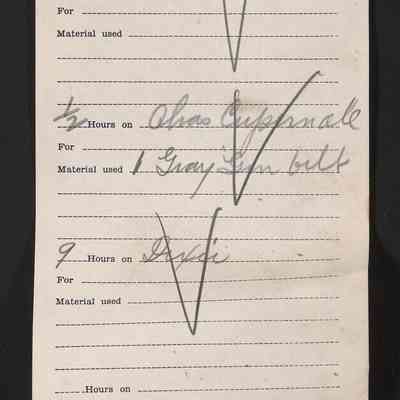 For
Material used
1/2 Hours on Chas Cupernall
For
Material used 1 Gray Gun belt
9 Hours on Dixie
For
Material used
Hours on